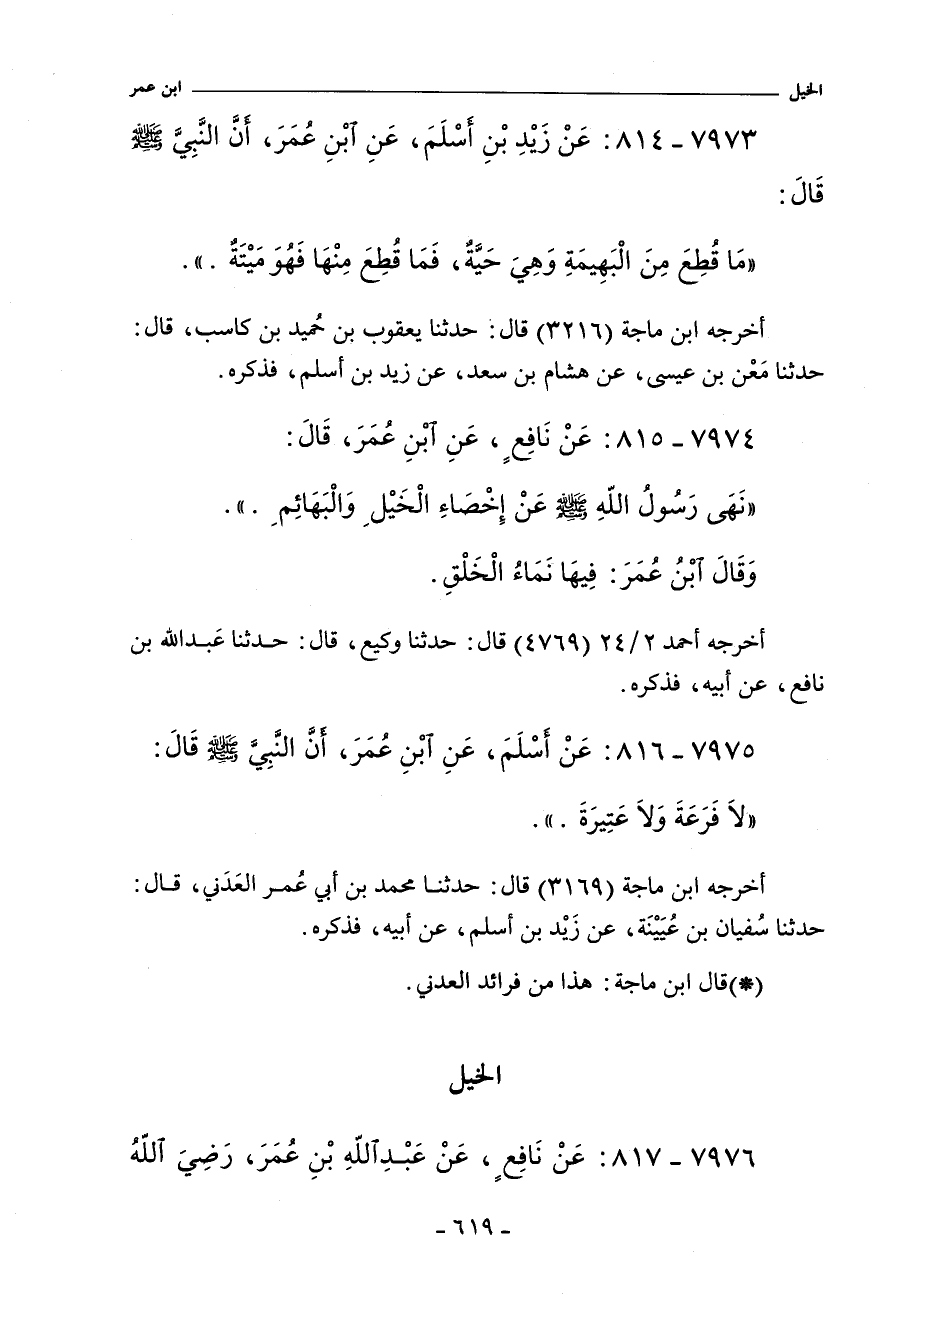 الخيل ابن عمر
٧٩٧٣ ـ ٨١٤ : عَنْ زَيْدِ بْنِ أَسْلَمَ، عَنِ ٱبْنِ عُمَرَ، أَنَّ النَّبِيَّ ﷺ
قَالَ :
«مَا قُطِعَ مِنَ الْبَهِيمَةِ وَهِيَ حَيَّةٌ، فَمَا قُطِعَ مِنْهَا فَهُوَ مَيْتَةٌ . ».
أخرجه ابن ماجة (٣٢١٦) قال : حدثنا يعقوب بن حُميد بن كاسب، قال :
حدثنا مَعْن بن عيسى، عن هشام بن سعد، عن زيد بن أسلم، فذكره.
٧٩٧٤ ـ ٨١٥ : عَنْ نَافِعٍ ، عَنِ ٱبْنِ عُمَرَ، قَالَ :
«نَهَى رَسُولُ اللّهِ ﷺ عَنْ إِخْصَاءِ الْخَيْلِ وَالْبَهَائِمِ . ».
وَقَالَ ٱبْنُ عُمَرَ : فِيهَا نَمَاءُ الْخَلْقِ .
أخرجه أحمد ٢/ ٢٤ (٤٧٦٩) قال : حدثنا وكيع، قال : حدثنا عَبدالله بن
نافع، عن أبيه، فذكره.
٧٩٧٥ ـ ٨١٦ : عَنْ أَسْلَمَ، عَنِ ٱبْنِ عُمَرَ، أَنَّ النَّبِيَّ ﷺ قَالَ :
«لاَ فَرَعَةَ وَلاَ عَتِيرَةَ . ».
أخرجه ابن ماجة (٣١٦٩) قال : حدثنا محمد بن أبي عُمر العَدَني، قال :
حدثنا سُفيان بن عُيَيْنَة، عن زَيْد بن أسلم، عن أبيه، فذكره.
(*)قال ابن ماجة : هذا من فرائد العدني.
الخيل
٧٩٧٦ ـ ٨١٧ : عَنْ نَافِعٍ ، عَنْ عَبْدِٱللّهِ بْنِ عُمَرَ، رَضِيَ ٱللّهُ
ـ ٦١٩ ـ